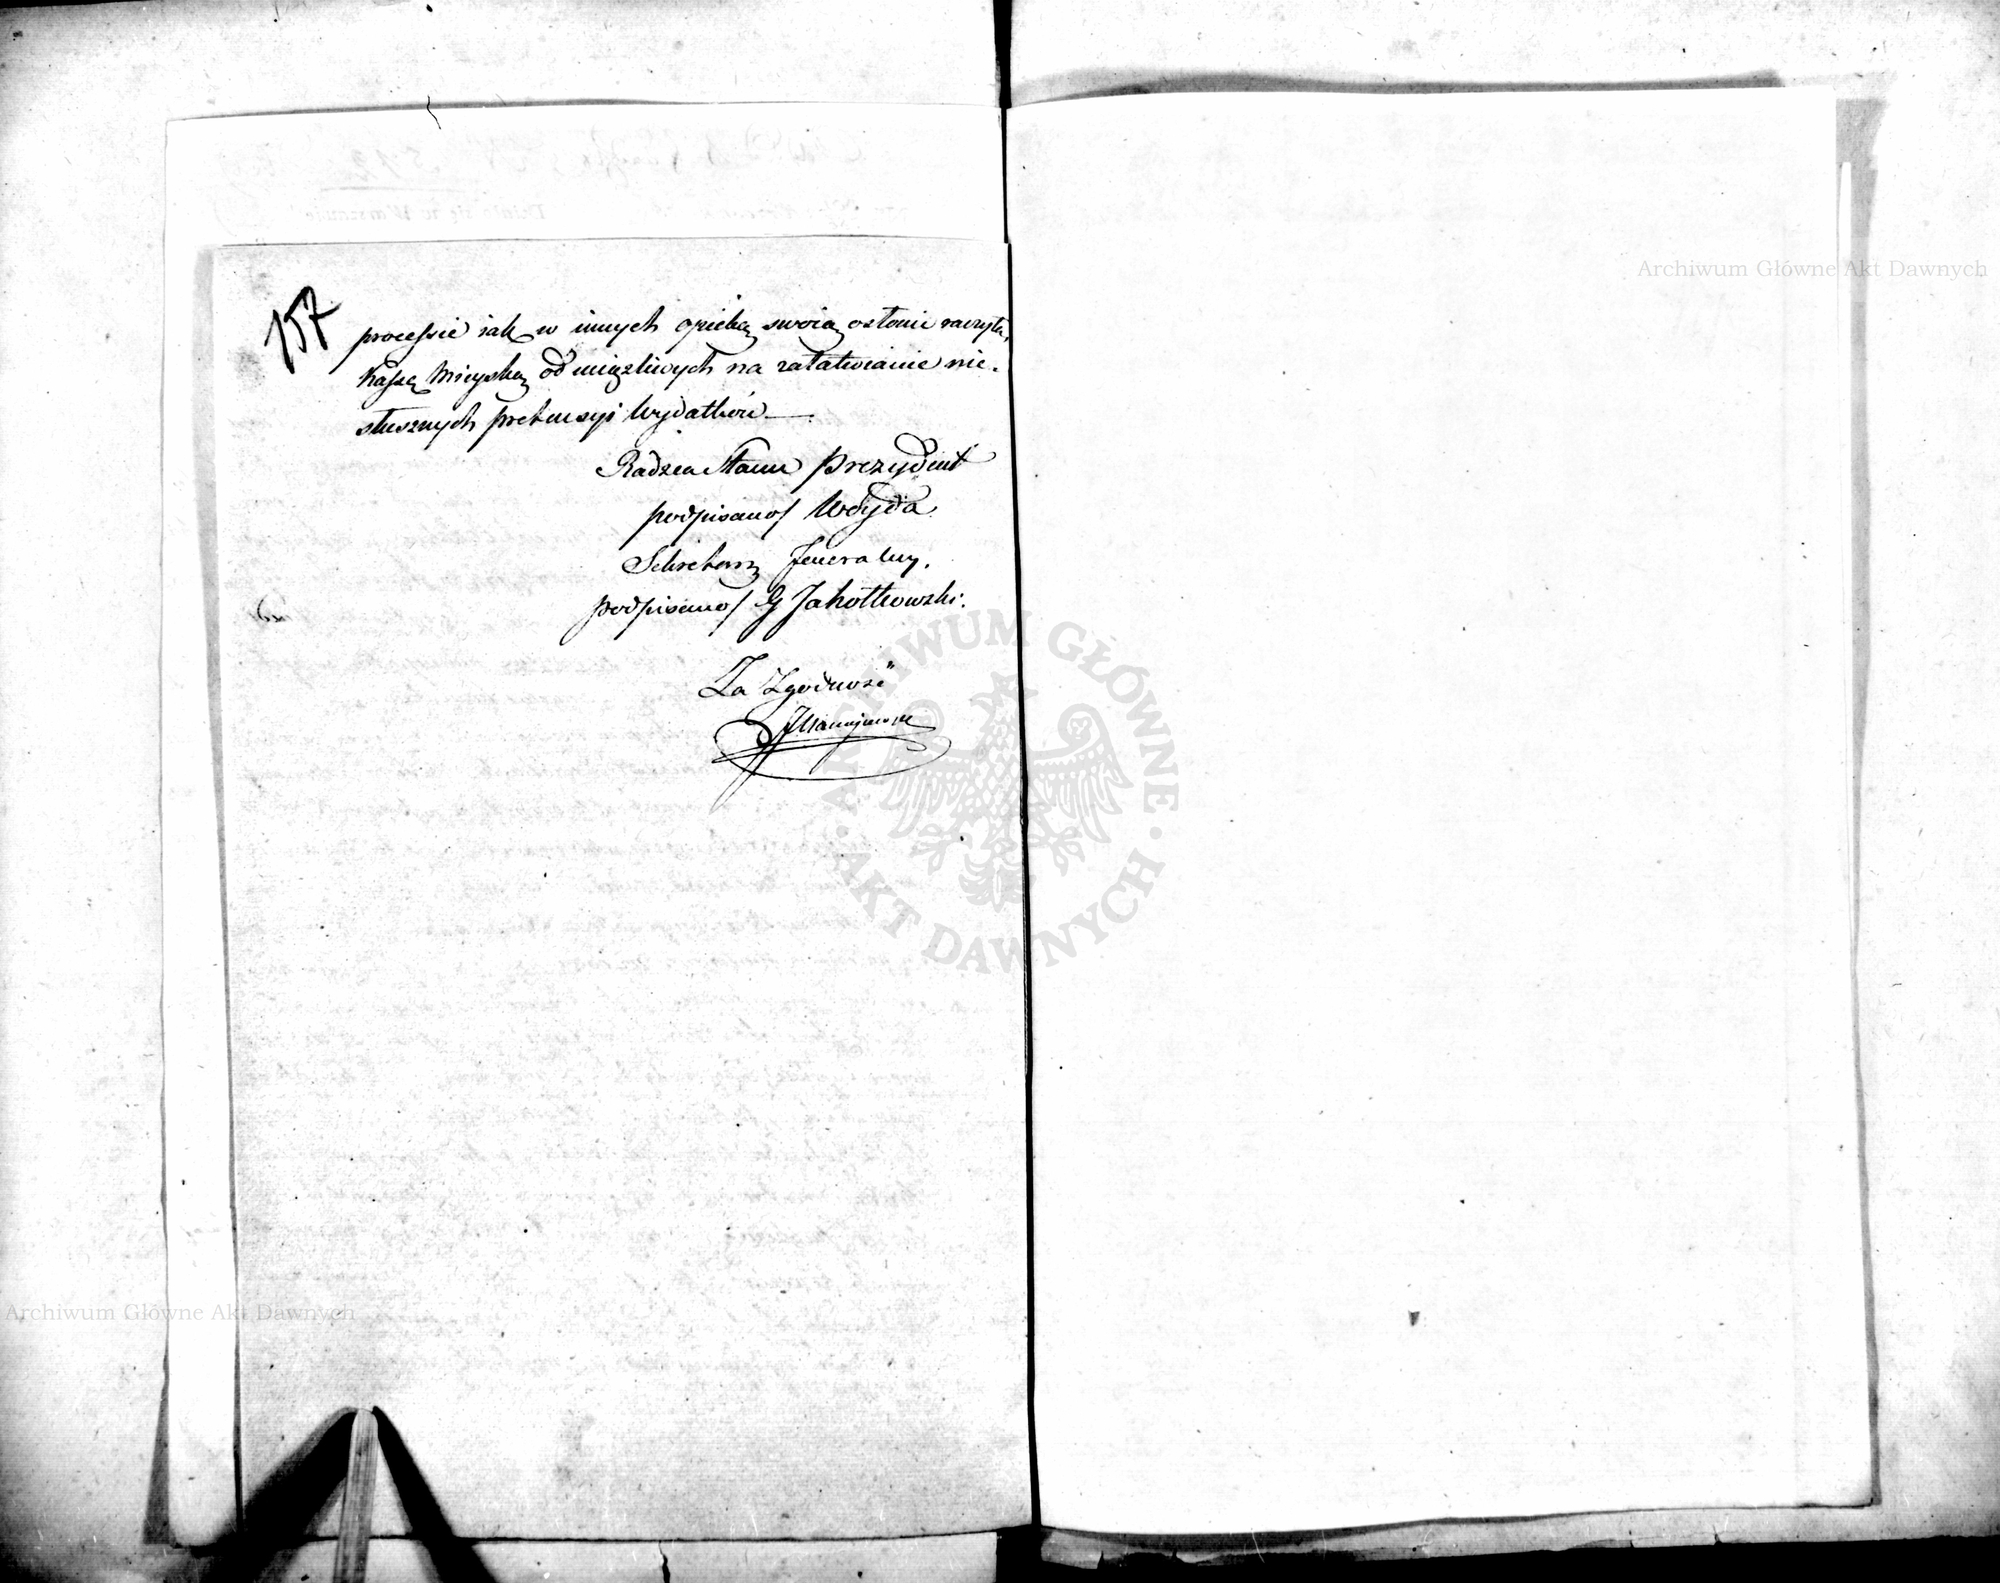 157
processie iak w innych opieką swoią osłonić raczyła,
Kassę Mieyską od uciążliwych na załatwianie nie-
słusznych pretensyi Wydatków.
Radzca Stanu Prezydent
podpisano/ Woyda
Sekretarz Jeneralny.
podpisano/ G Jahołkowski.
Za Zgodność
Archiwum Główne Akt Dawnych
Archiwum Główne Akt Dawnych
ARCHIWUM GŁÓWNE · AKT DAWNYCH ·